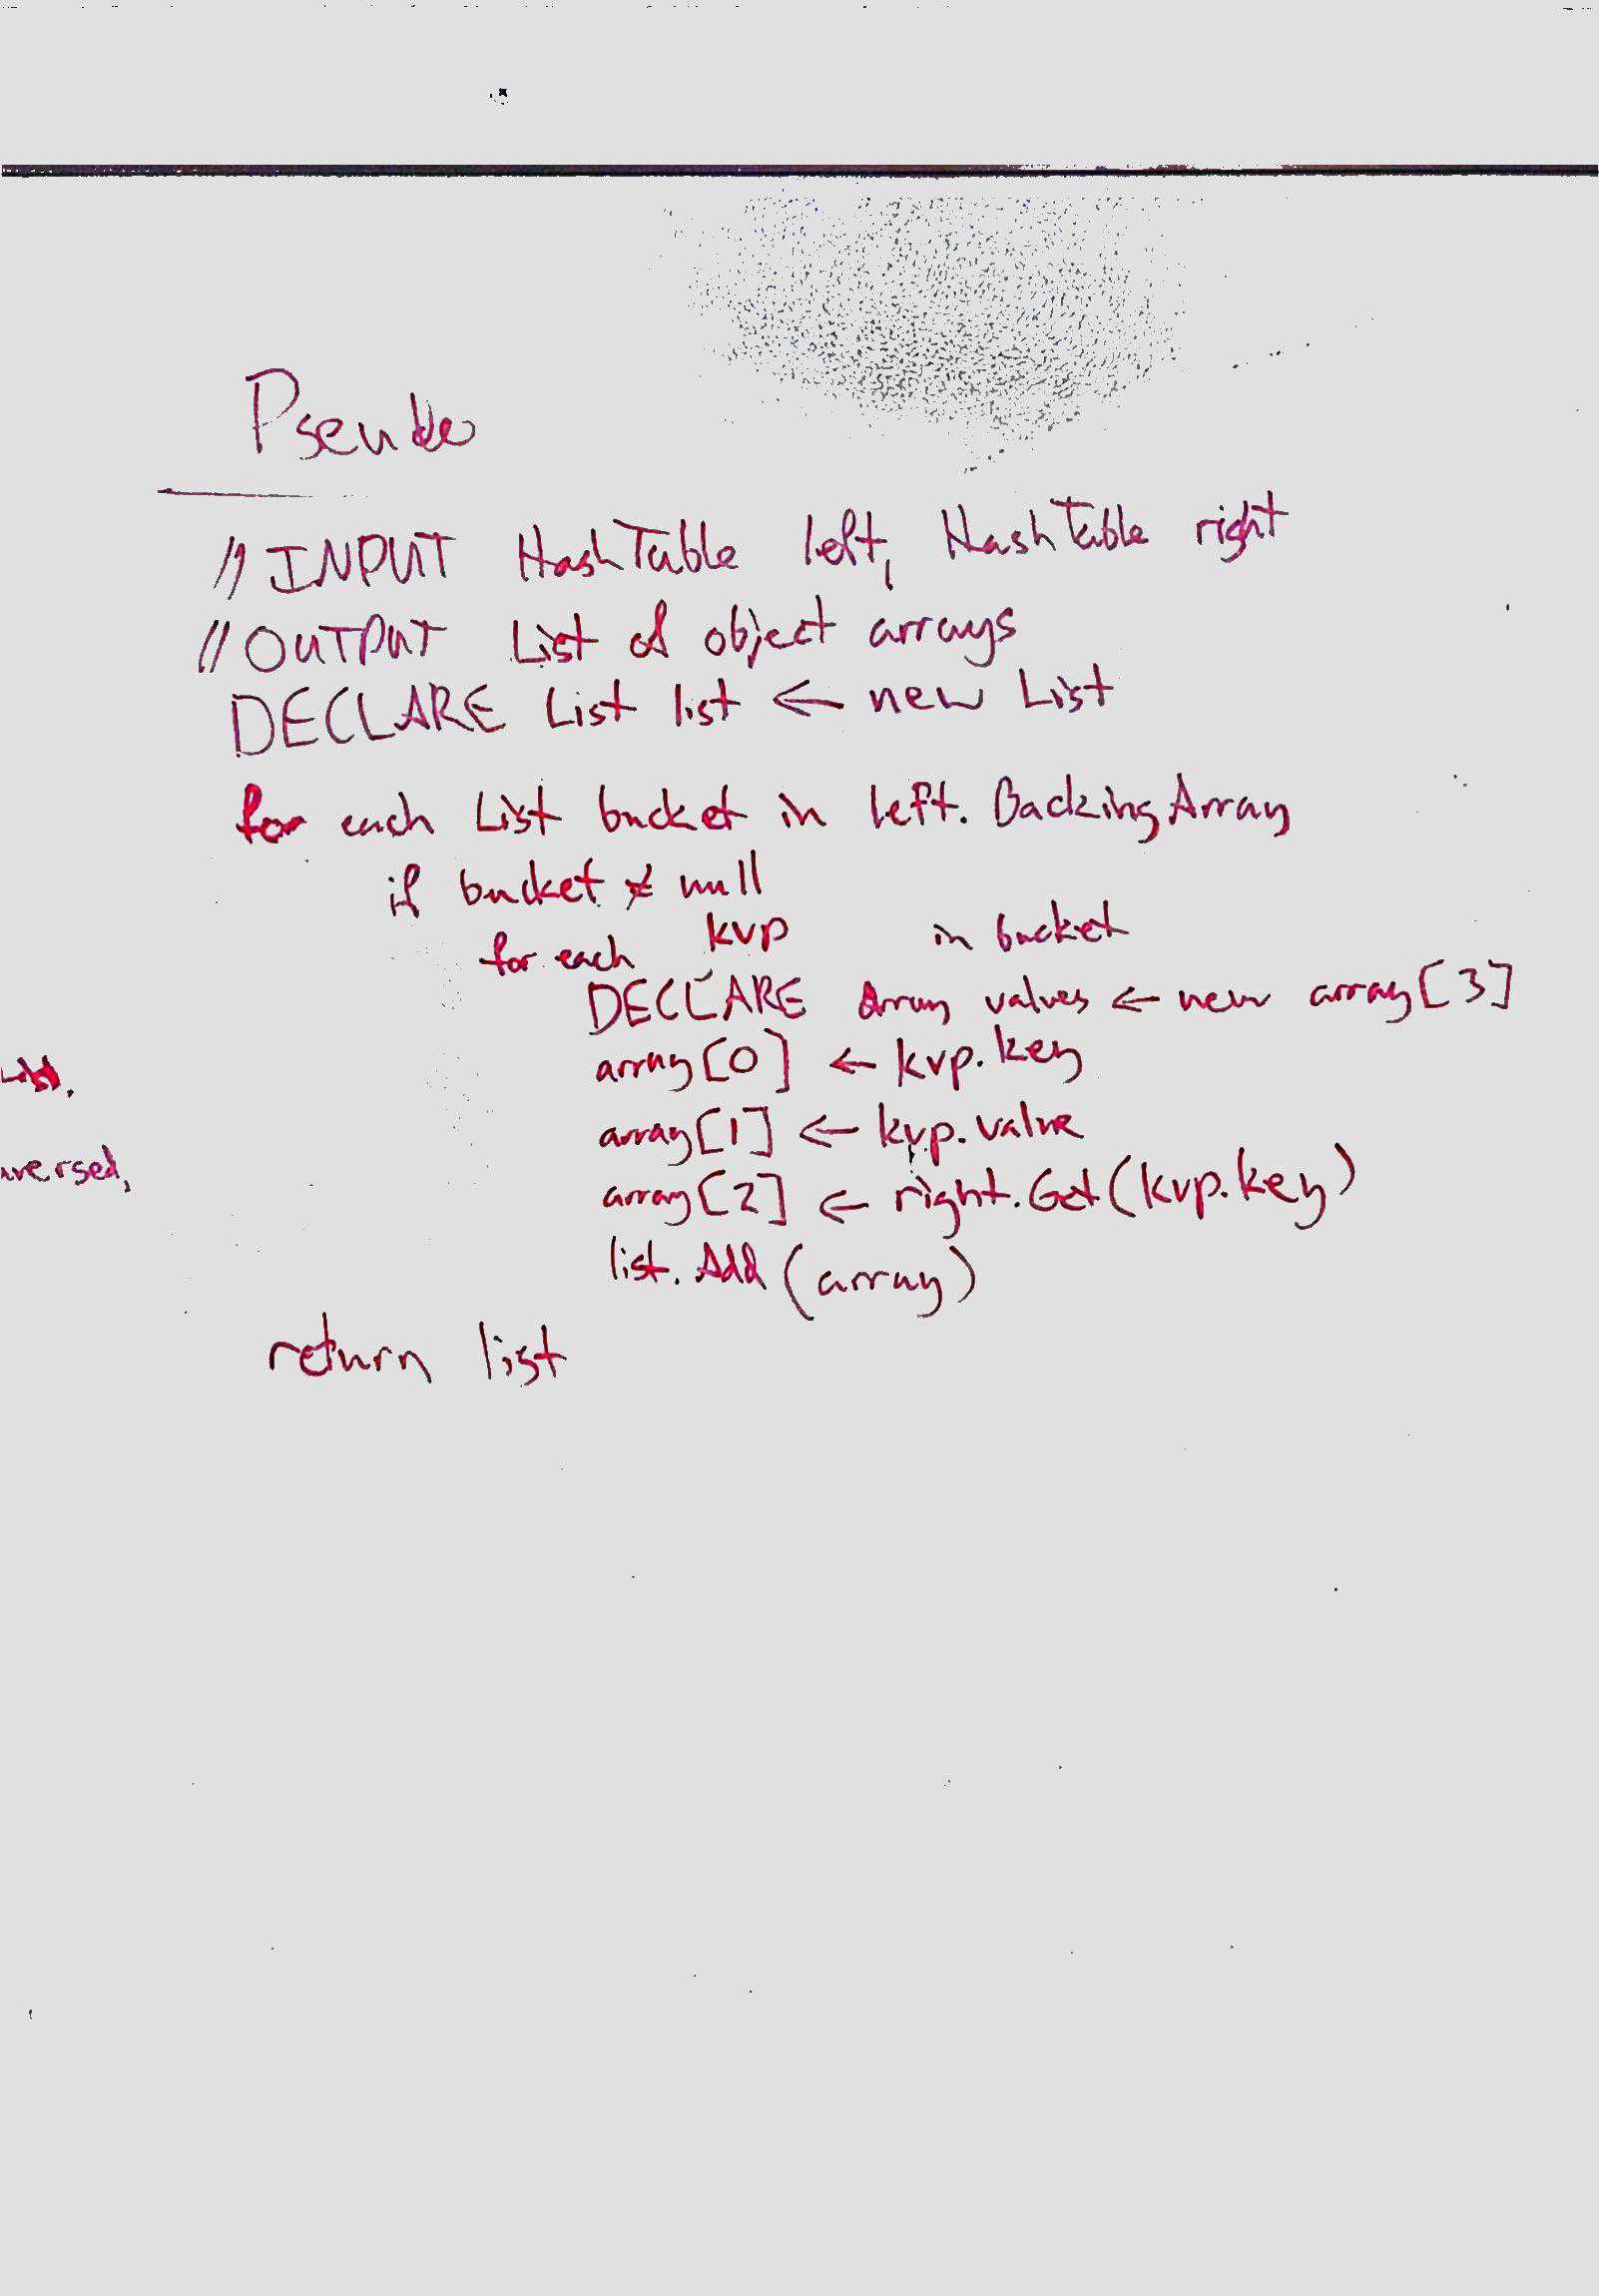 Pseudo
// INPUT HashTable left, HashTable right
// OUTPUT List of object arrays
DECLARE List list ← new List
for each List bucket in left.BackingArray
if bucket ≠ null
for each kvp in bucket
DECLARE Array values ← new array[3]
array[0] ← kvp.key
array[1] ← kvp.value
array[2] ← right.Get(kvp.key)
list.Add(array)
return list
versed,